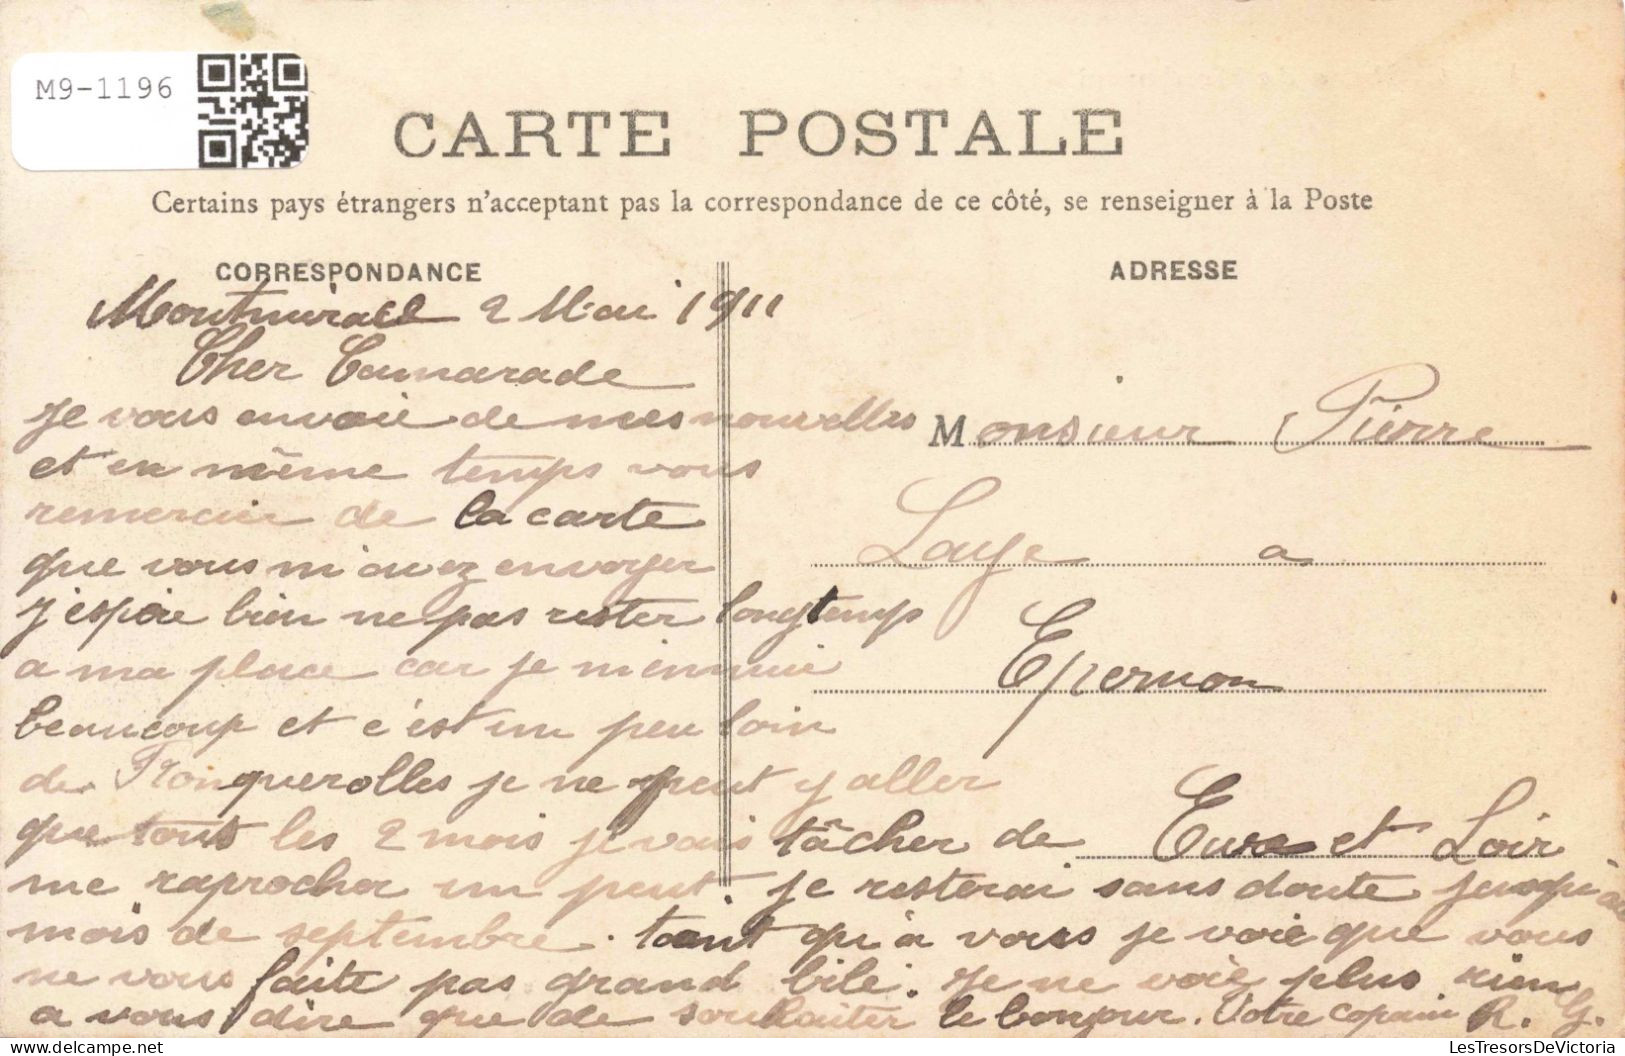 M9-1196
CARTE POSTALE
Certains pays étrangers n'acceptant pas la correspondance de ce côté, se renseigner à la Poste
CORRESPONDANCE
Montmirail 2 Mai 1911
Cher Camarade
je vous envoie de mes nouvelles
et en même temps vous
remercie de la carte
que vous m'avez envoyer
j'espère bien ne pas rester longtemps
a ma place car je m'ennuie
beaucoup et c'est un peu loin
de Fronquerolles je ne peut y aller
que tout les 2 mois je vais tâcher de
me raprocher un peut. je resterai sans doute jusqu'au
mois de septembre. tant qu'à vous je voie que vous
ne vous faite pas grand bile. Je ne voie plus rien
a vous dire que de souhaiter le bonjour. Votre copain R. G.
ADRESSE
Monsieur Pierre
Laye a
Epernon
Eure et Loir
LesTresorsDeVictoria